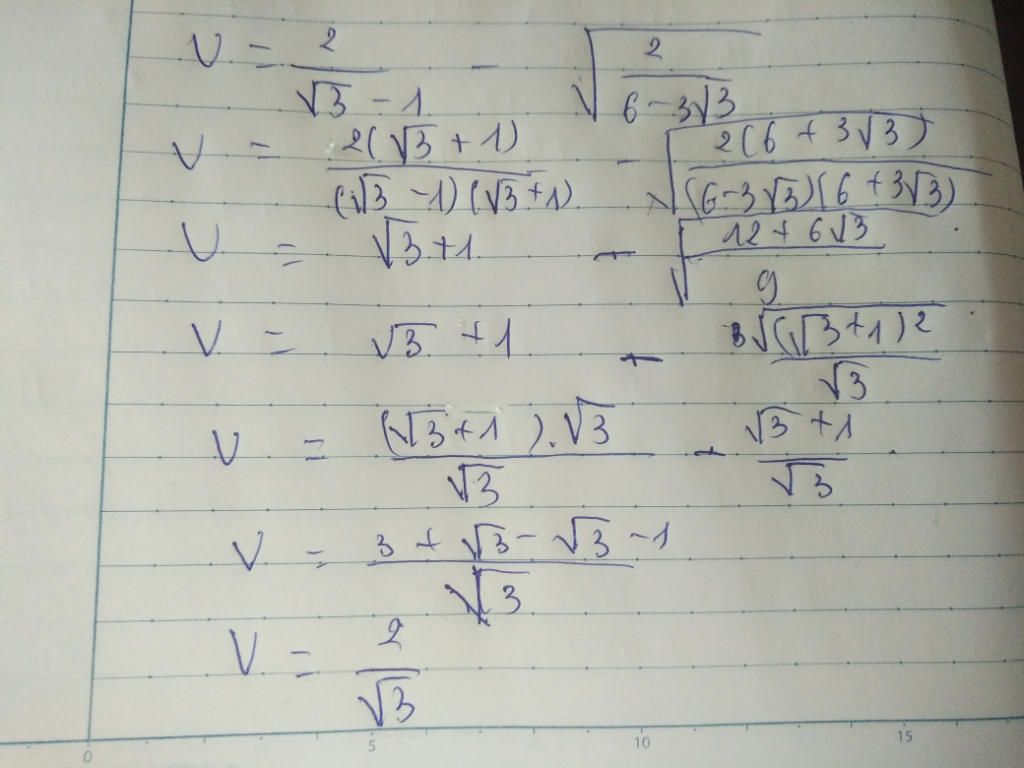 V = 2/(√3 - 1) - √(2/(6 - 3√3))
V = 2(√3 + 1)/((√3 - 1)(√3 + 1)) - √(2(6 + 3√3)/((6 - 3√3)(6 + 3√3)))
V = √3 + 1 - √((12 + 6√3)/9)
V = √3 + 1 - √((√3 + 1)²)/√3
V = (√3 + 1).√3/√3 - (√3 + 1)/√3
V = (3 + √3 - √3 - 1)/√3
V = 2/√3
0 5 10 15